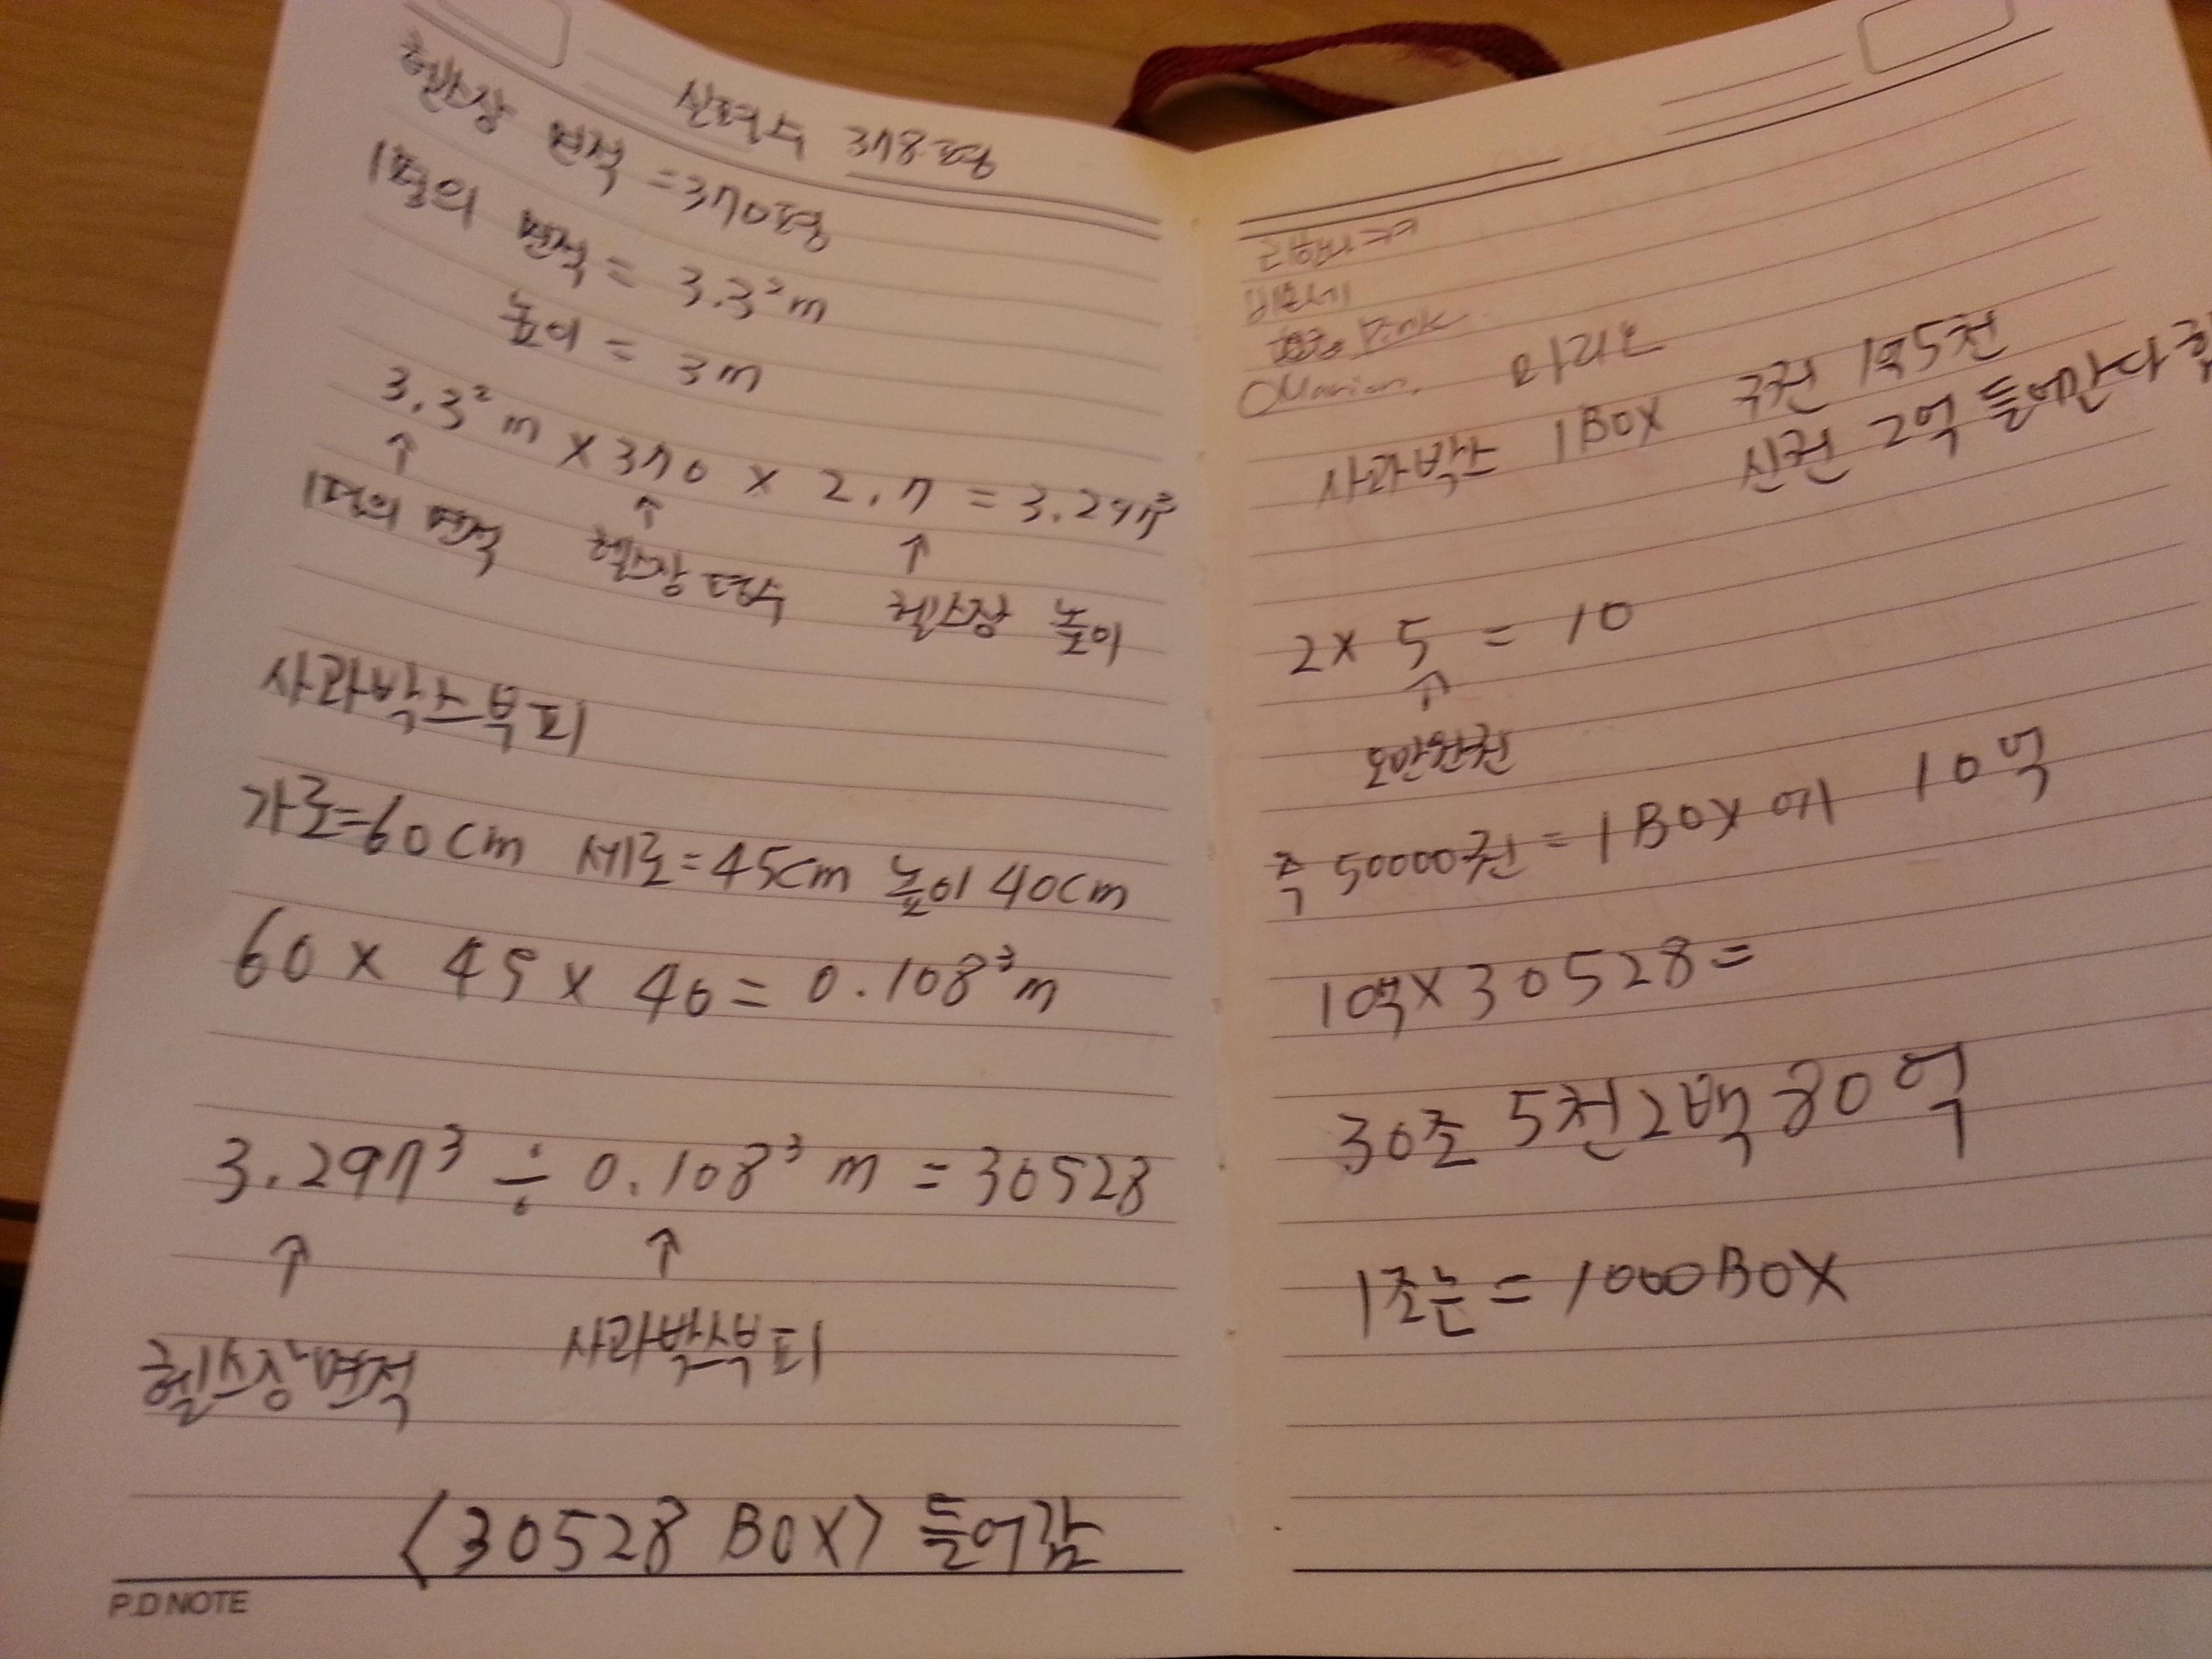 실평수 378평
헬스장 면적 = 370평
1평의 면적 = 3.3²m
높이 = 3m
3.3²m × 370 × 2.7 = 3.297³
↑ ↑ ↑
1평의 면적 헬스장 평수 헬스장 높이
사과박스부피
가로=60cm 세로=45cm 높이 40cm
60 × 45 × 40 = 0.108³m
3.297³ ÷ 0.108³m = 30528
↑ ↑
헬스장면적 사과박스부피
<30528 BOX> 들어감
P.D NOTE
Pink
마리오
사과박스 1BOX 구권 1억5천
신권 2억 들어간다함
2 × 5 = 10
↑
오만원권
즉 50000권 = 1BOX에 10억
10억×30528=
30조 5천2백80억
1조는 = 1000BOX